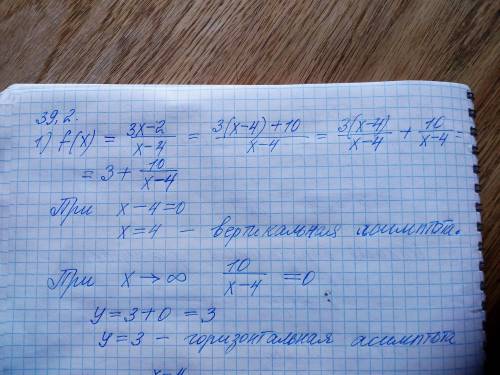 39,2.
1) f(x) = \frac{3x-2}{x-4} = \frac{3(x-4)+10}{x-4} = \frac{3(x-4)}{x-4} + \frac{10}{x-4} =
= 3 + \frac{10}{x-4}
При x-4=0
x=4 - вертикальная асимптота.
При x → ∞ \frac{10}{x-4} = 0
y=3+0 = 3
y=3 - горизонтальная асимптота
x-4